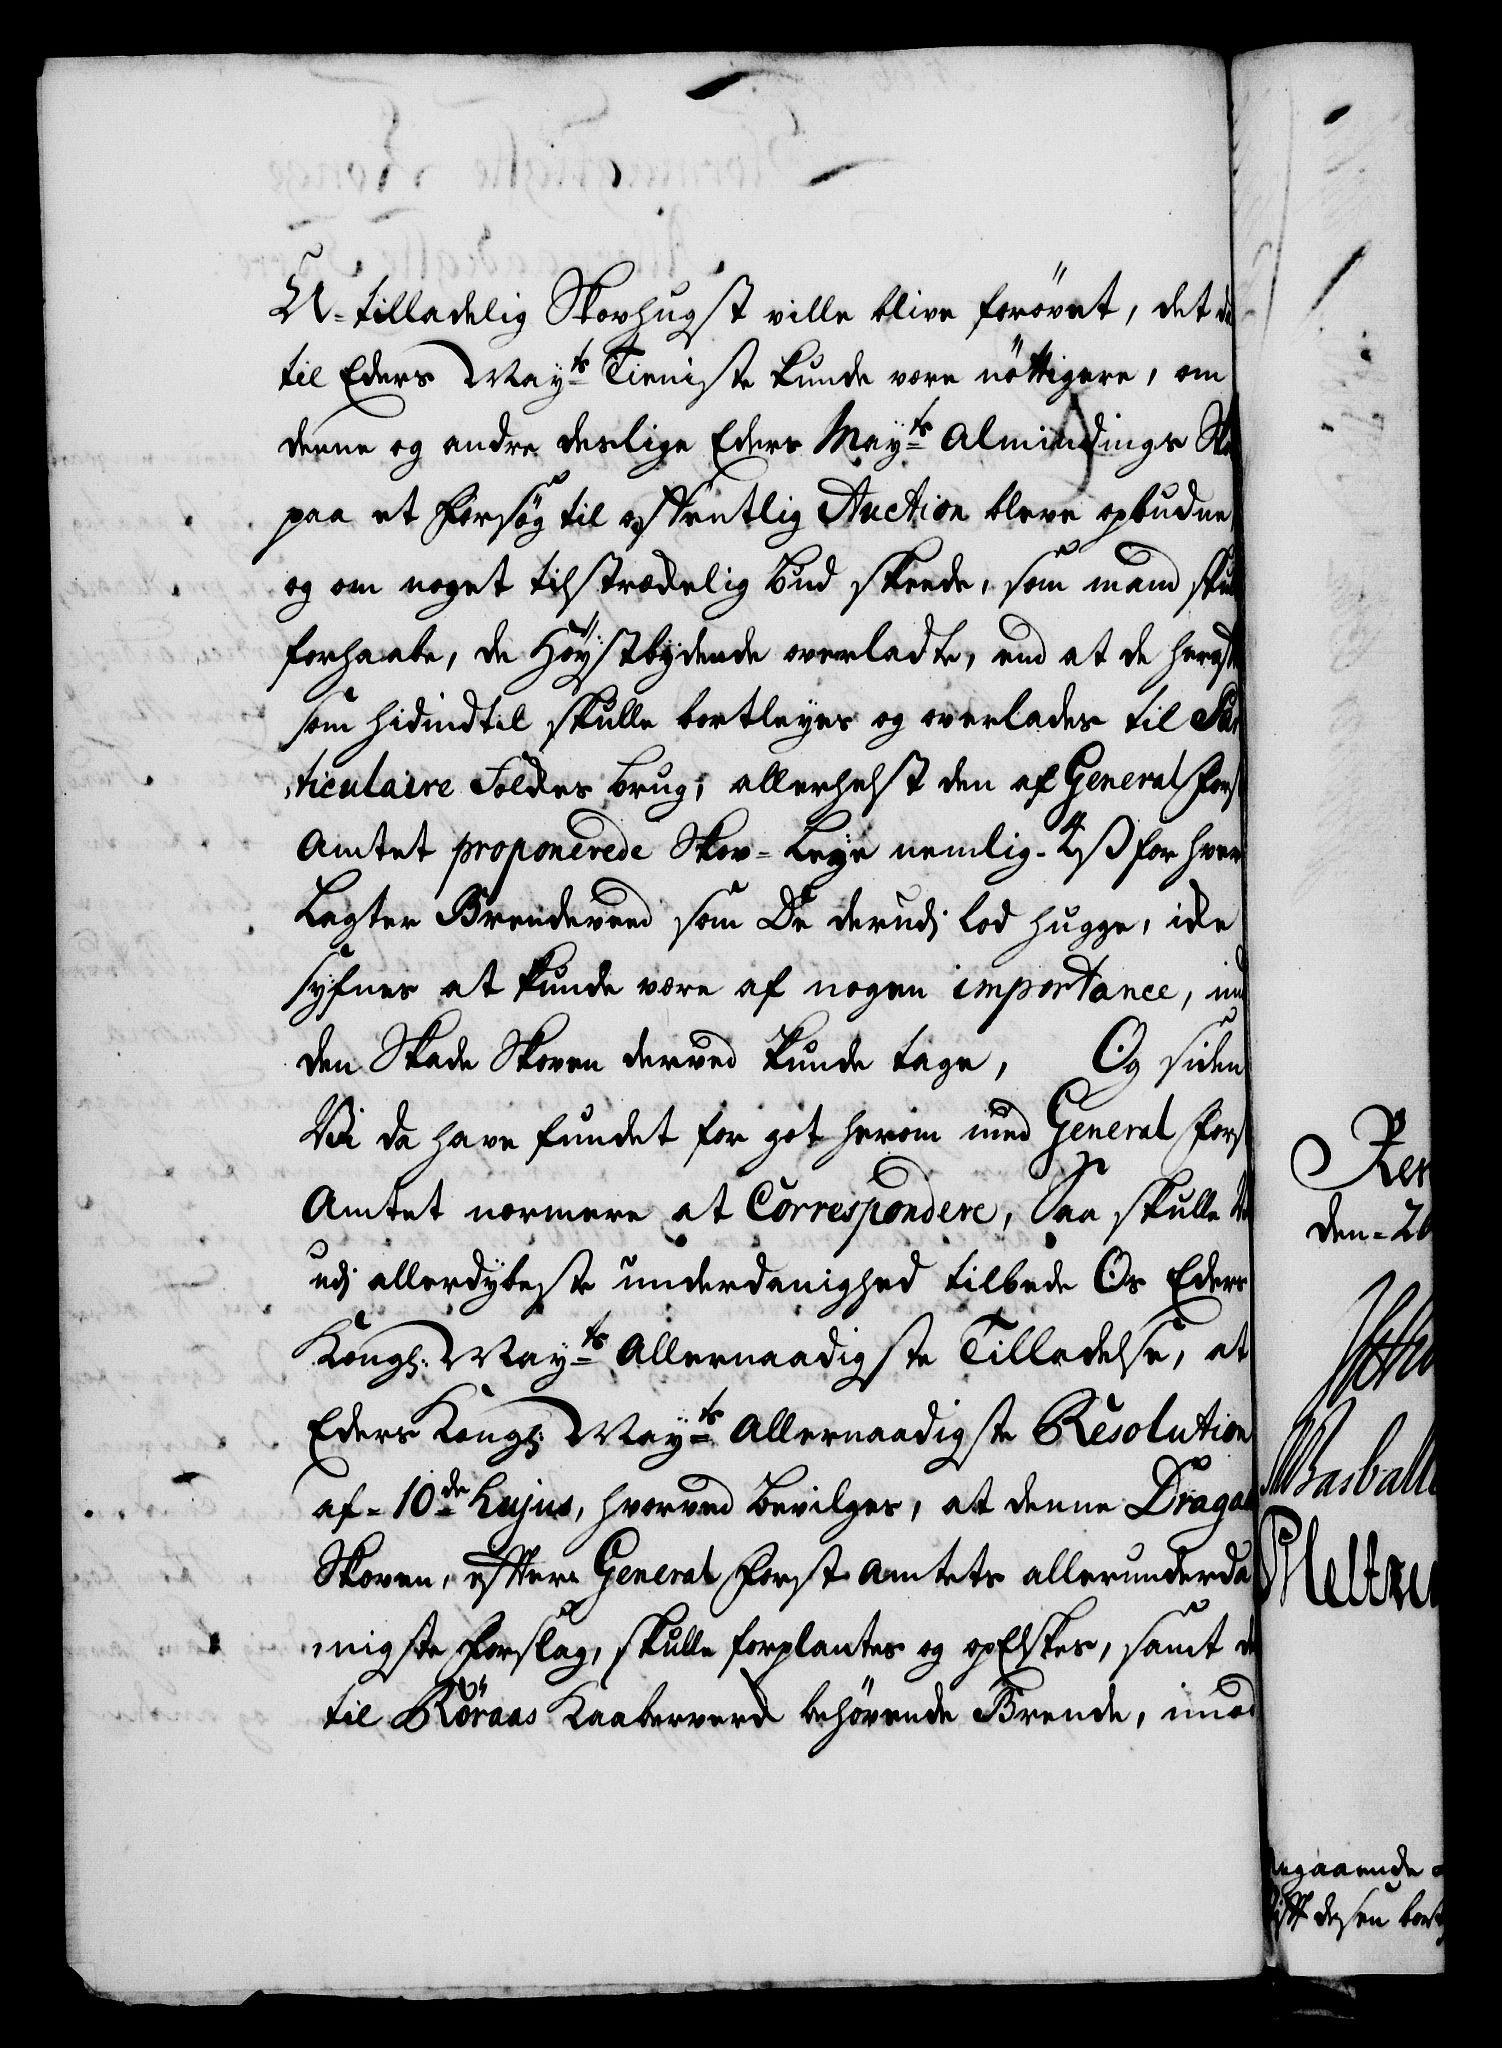 U-tilladelig Skovhugst ville blive forövet, det da
til Eders Mayts Tieniste kunde være nöttigere, om
denne og andre deslige Eders Mayts Almindings Sko
paa et Forsög til offentlig Auction bleve opbudne
og om noget tilstrædelig Bud skeede, som mand skul
forhaabe, de Höystbydende overladte, end at de herefter
som hidindtil skulle bortleyes og overlades til Par
ticulaire Folckes brug; allerhelst den af General Forst
Amtet proponerede Skov-Leye nemlig 4 ß for hver
Lagter Brendeveed som De derudj lod hugge, icke
syfnes at kunde være af nogen importance, imod
den Skade Skoven derved kunde tage, Og siden
Vi da have fundet for got herom med General Forst
Amtet nærmere at Correspondere, Saa skulle Vi
udj allerdybeste underdanighed tilbede Os Eders
Kongl: Mayts Allernaadigste Tilladelse, at
Eders Kongl: Mayts Allernaadigste Resolution
af 10de hujus, hvorved bevilges, at denne Dragaas
Skoven, efter General Forst Amtets allerunderda
nigste Forslag, skulle forplantes og opElskes, samt de
til Röraas Kaaberverck behövende Brende, imod
Res
den 26
Basballe
Meltze
egaaende
desen bort